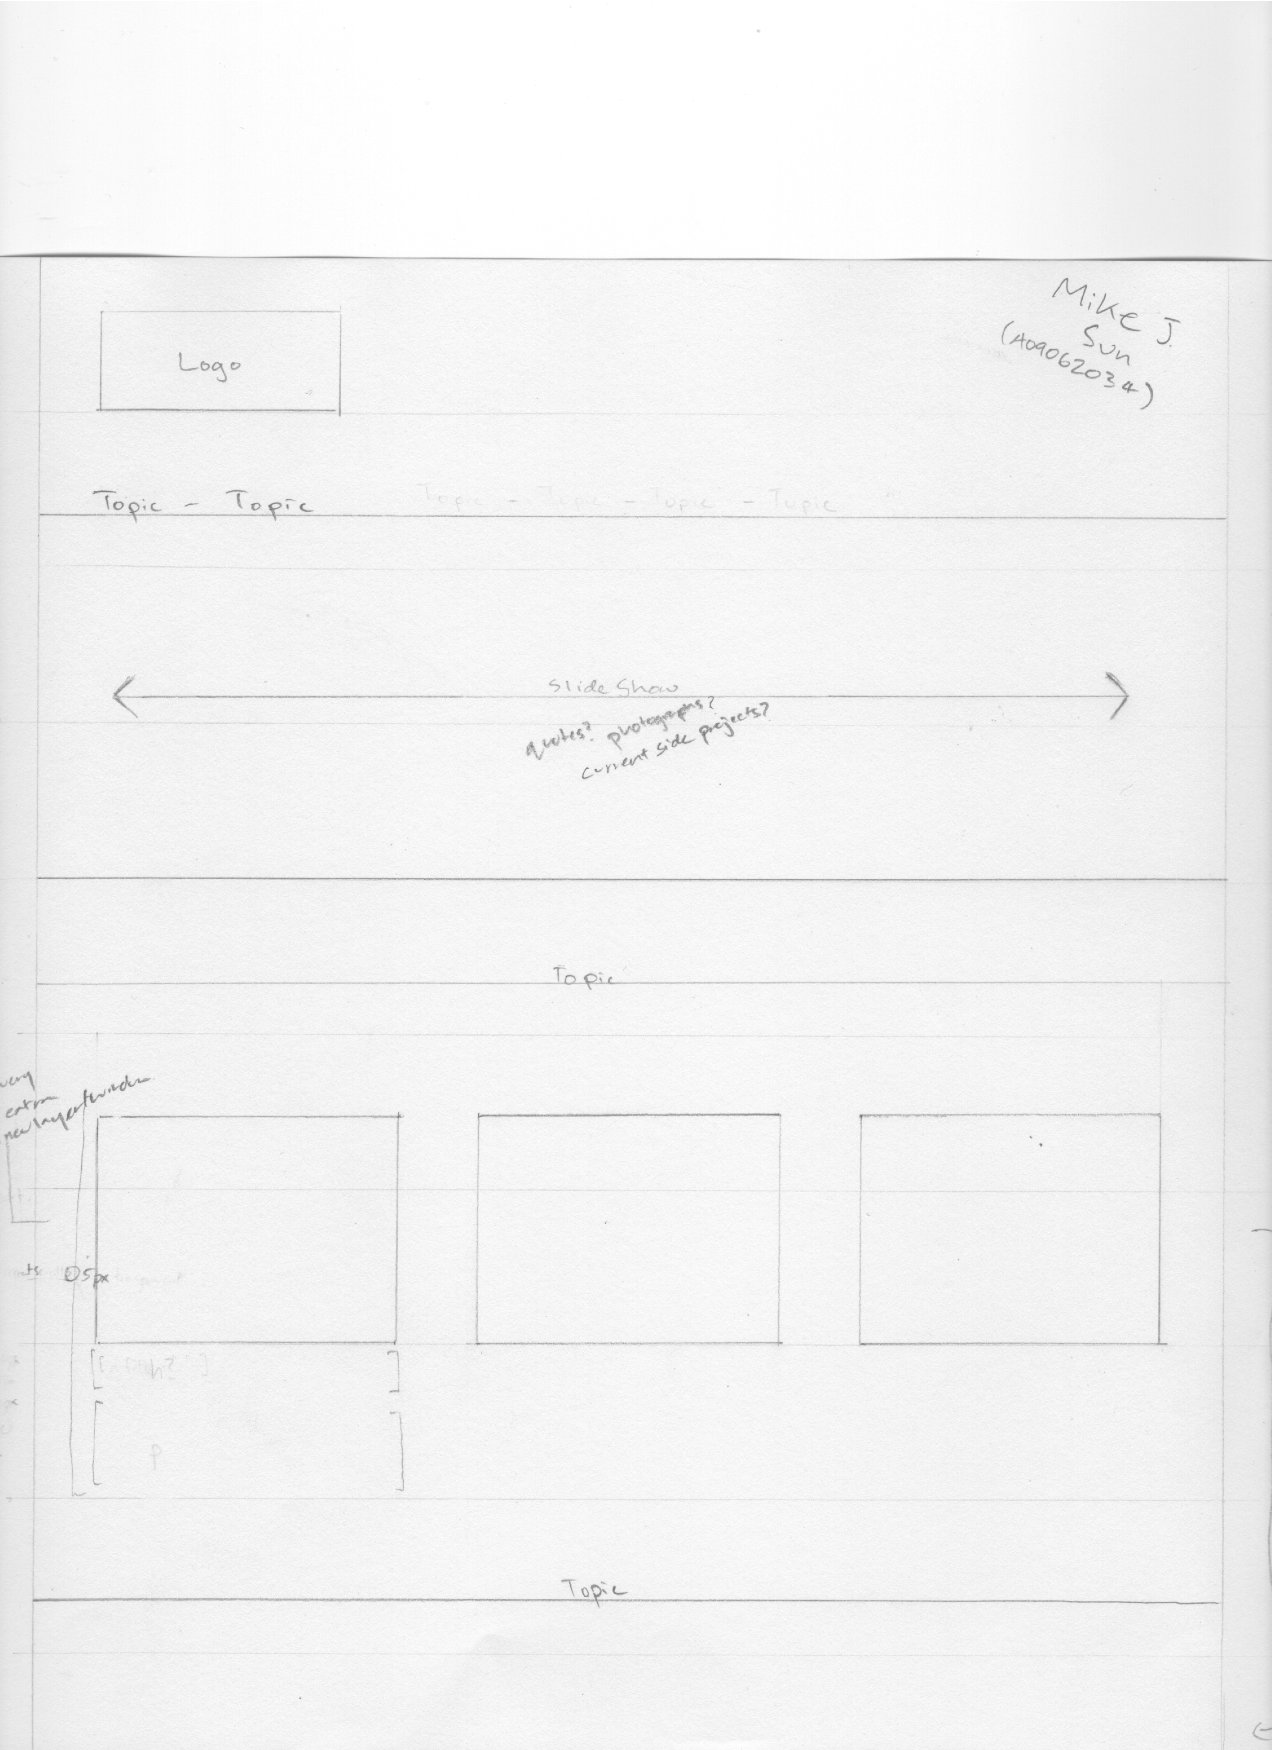 Mike J.
Sun
(A09062034)
Logo
Topic - Topic Topic - Topic - Topic - Topic
Slide Show
quotes? photographs?
current side projects?
Topic
new layer/window
05px
Topic